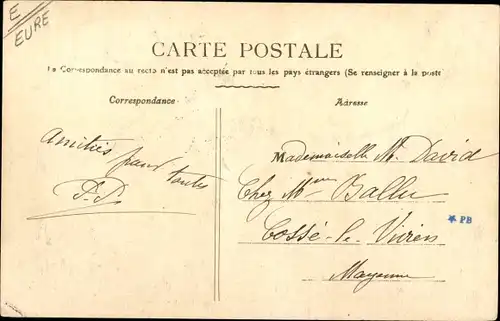 E
EURE
CARTE POSTALE
La Correspondance au recto n'est pas acceptée par tous les pays étrangers (Se renseigner à la poste
Correspondance
Adresse
Amitiés pour toutes
P.D.
Mademoiselle M. David
Chez Mme Ballu
Cossé-le-Vivien
Mayenne
* PB